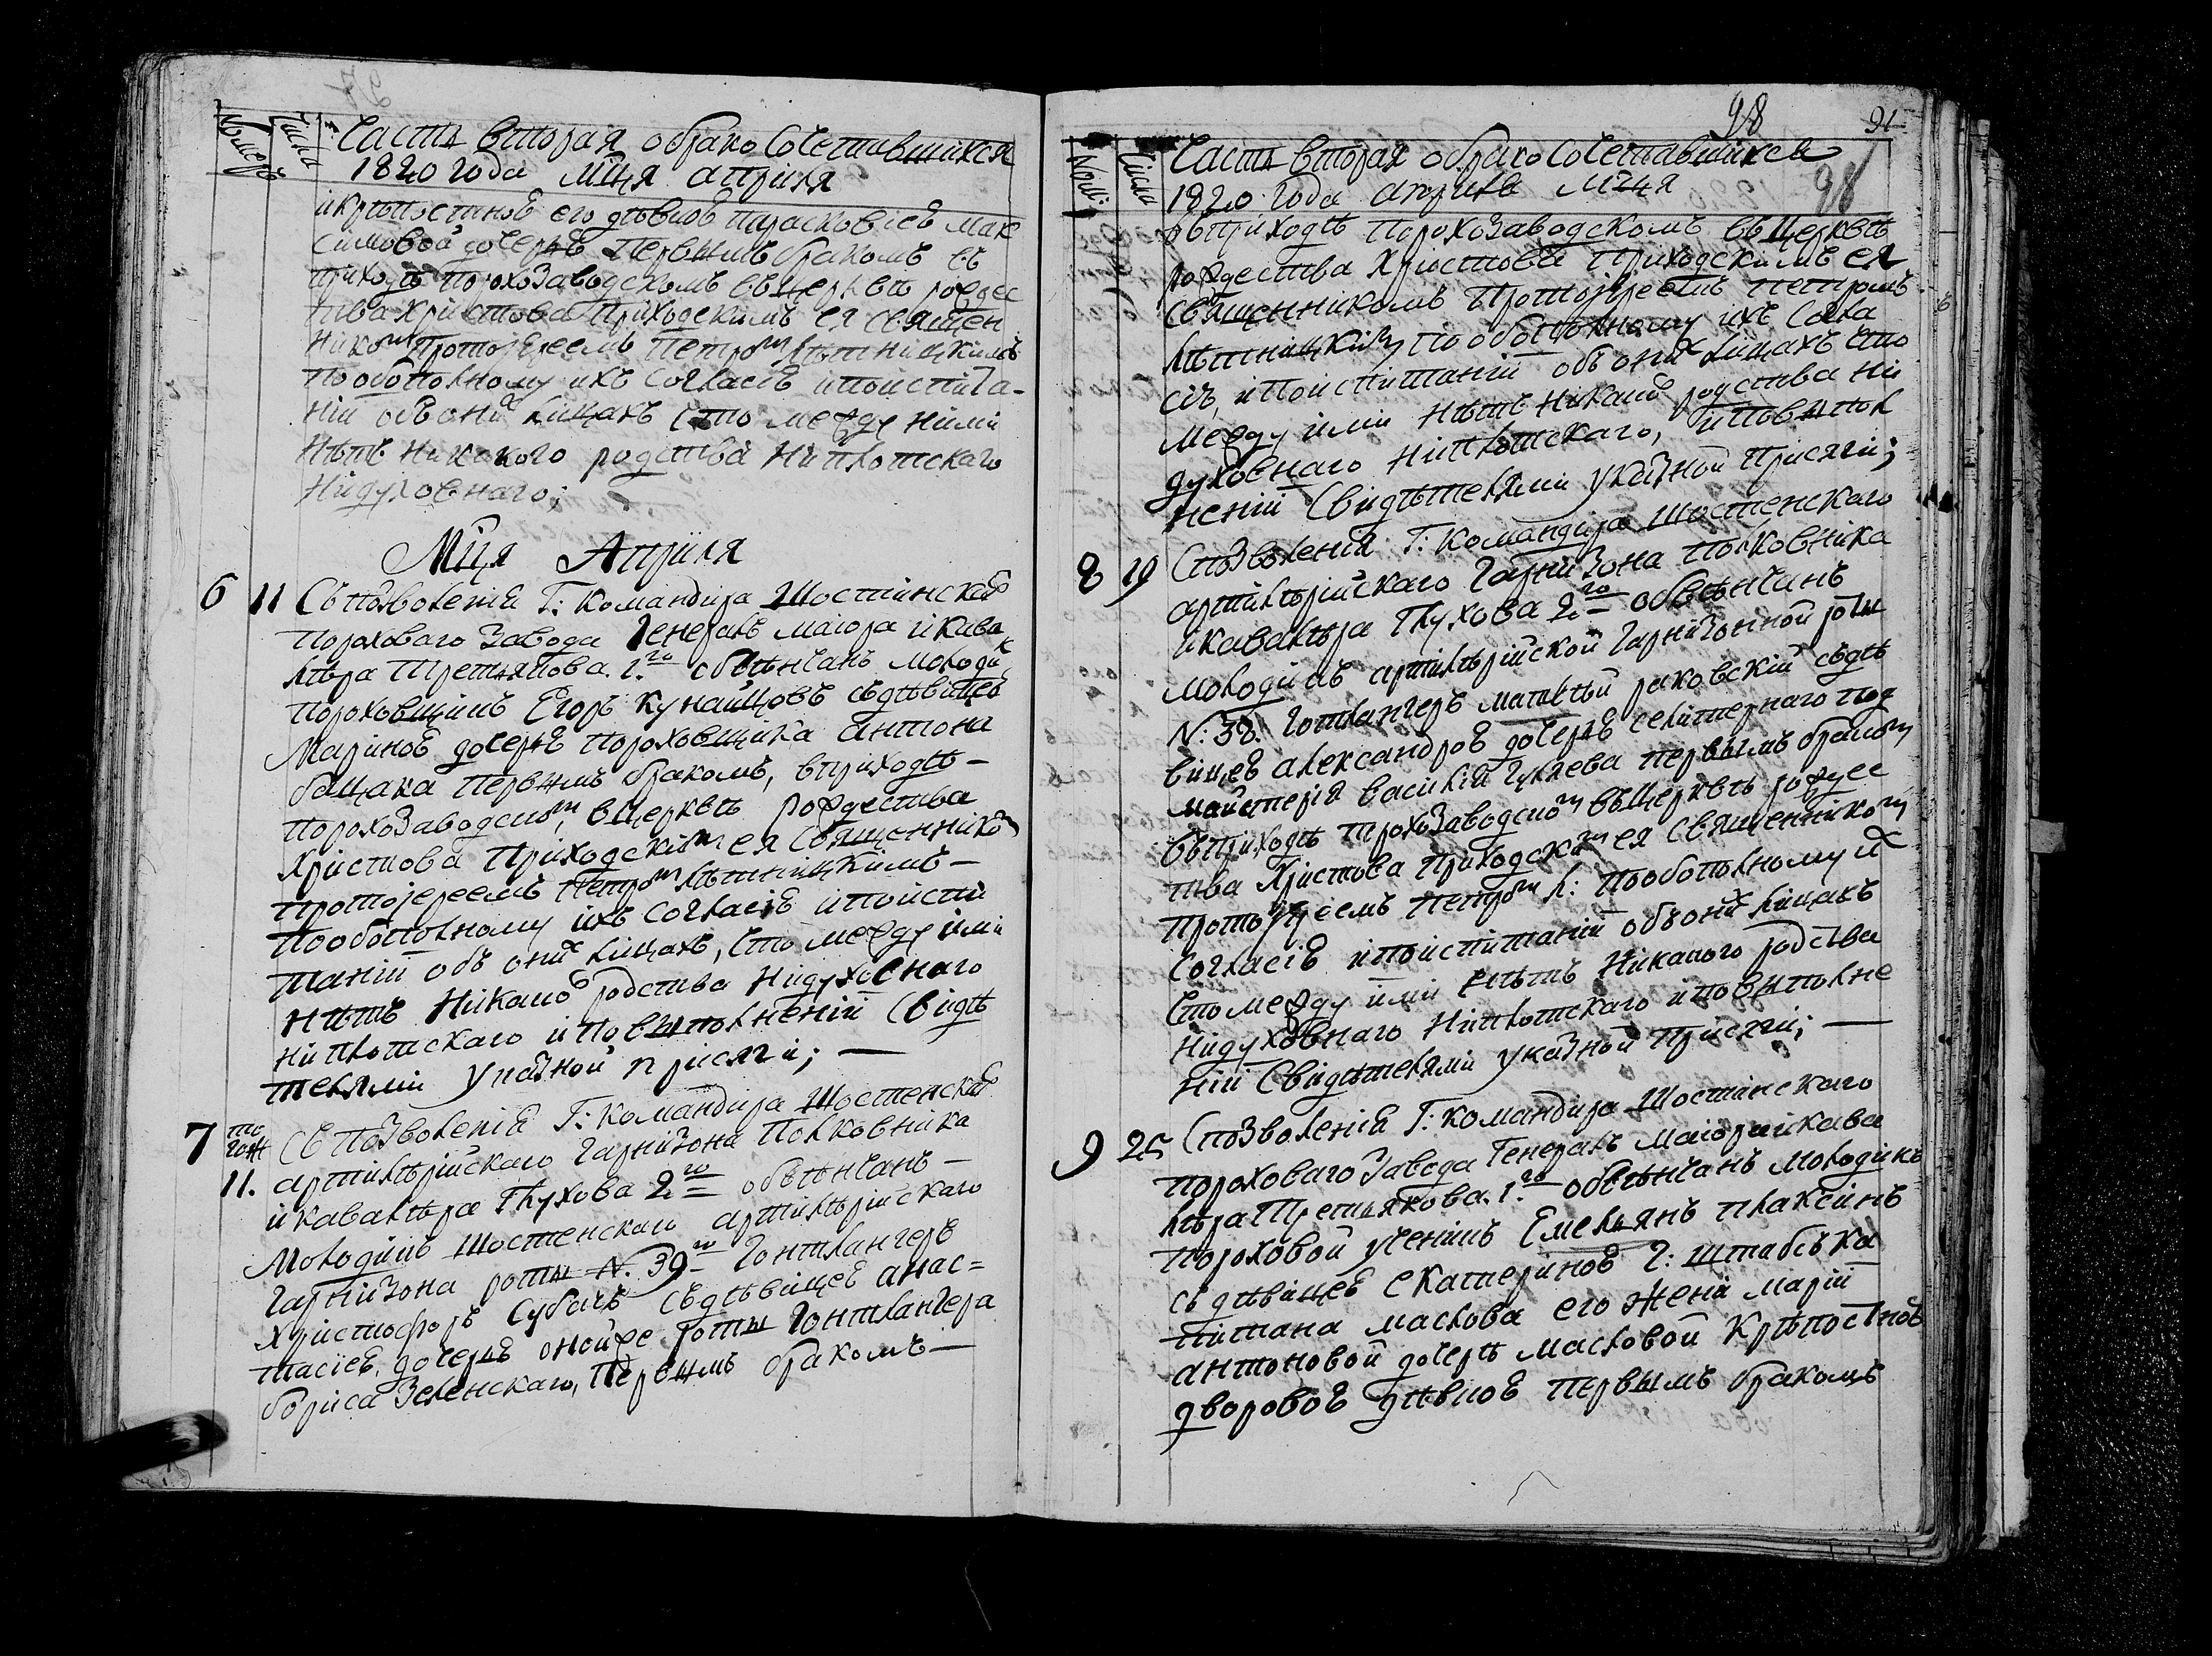 97
Номеръ
Числа
Часть вторая о бракосочетавшихся
1820 года мца априля
и крѣпостноѣ его дѣвкоѣ Парасковіеѣ Мак
симовой дочерѣ первымъ бракомъ въ
приходѣ порохозаводскомъ въ церквѣ рождес
тва Христова Приходскимъ ея священ
никомъ Протоіереемъ Петромъ Лѣтницкимъ
по обополному ихъ согласіѣ и по испита-
ніи объ оных лицахъ что между ними
Нѣтъ Никакого родства Ни плотскаго
Ни духовнаго;
Мца Априля
6
11
Съ позволенія Г: Командира Шостинскаго
пороховаго завода Генералъ маіора и кава
лѣра Третьякова 1.го обвѣнчанъ молодик
пороховщикъ Егоръ Кунащовъ съ дѣвицеѣ
Мариноѣ дочерѣ пороховщика Антона
бащака первымъ бракомъ, в приходѣ –
порохозаводскомъ, в церквѣ рождества
Христова Приходскимъ ея священникомъ
протоіереемъ Петромъ Лѣтницкимъ –
по обополному ихъ согласіѣ и по испи
таніи объ оных лицахъ, что между ими
нѣтъ Никакоо родства Ни духовнаго
ни плотскаго и по выполненіи свидѣ
телями указной присяги; —
7
то
гож
11.
Съ позволеніѣ Г: Командира Шостенскаго
артилѣрійскаго гарнизона полковника
и кавалѣра Глухова 2го обвѣнчанъ –
Молодикъ Шостенскаго артилѣрійскаго
Гарнизона роты N. 39го Гонтлангеръ
Христофоръ Субачъ съ дѣвицеѣ Анас=
тасіеѣ, дочерѣ оной же роты Гонтлангера
бориса Зеленскаго, первымъ бракомъ —
98
91
98
Ном:
Числа
Часть вторая о бракосочетавшихся
1820 года априля мца
въ приходѣ порохозаводскомъ въ церквѣ
рождества Христова Приходскимъ ея
священникомъ Протоіреемъ Петромъ
Лѣтницкимъ по обополному ихъ согла
сіѣ, и по испитаніи объ оных лицахъ что
между ими Нѣтъ Никакоо родства ни
духовнаго ни плотскаго, и по выпол
неніи свидѣтелями указной присяги;
8
19
С позволенія Г: Командира Шостенскаго
артилѣрійскаго Гарнизона полковника
и кавалѣра Глухова 2го обвѣнчанъ
молодикъ артилѣрійской Гарнизонной роты
N: 38. Гонтлангеръ Матвѣй раковскій съ дѣ
вицеѣ Александроѣ дочерѣ селитернаго под
майстерія Василія Гуляева первымъ бракомъ
въ приходѣ порохозаводскомъ въ церквѣ рождес
тва Христова Приходскимъ ея священникомъ
протоіреемъ Петромъ Л: по обополному их
согласіѣ и по испитаніи объ оных лицахъ
что между ими Нѣтъ Никакого родства
Ни духовнаго Ни плотскаго и по выполне
ніи свидѣтелями указной присяги; —
9
25
С позволенія Г: Командира Шостинскаго
пороховаго завода Генералъ маіора и кава
лѣра Третьякова. 1.го обвѣнчанъ молодикъ
пороховой ученикъ Емельянъ плаксинъ
съ дѣвицеѣ екатериноѣ Г: штабсъ ка
питана маслова его жени маріи
антоновой дочерѣ масловой крѣпостноѣ
двороваѣ дѣвкоѣ первымъ бракомъ